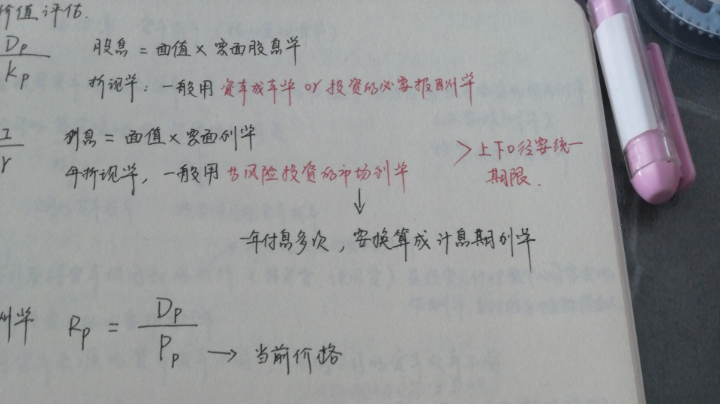 价值评估
Dp
Kp
股息 = 面值 × 票面股息率
折现率: 一般用 资本成本率 or 投资的必要报酬率
I
r
利息 = 面值 × 票面利率
年折现率, 一般用 当风险投资的市场利率
> 上下口径要统一
期限.
↓
一年付息多次, 要换算成计息期利率
Rp = Dp
Pp → 当前价格